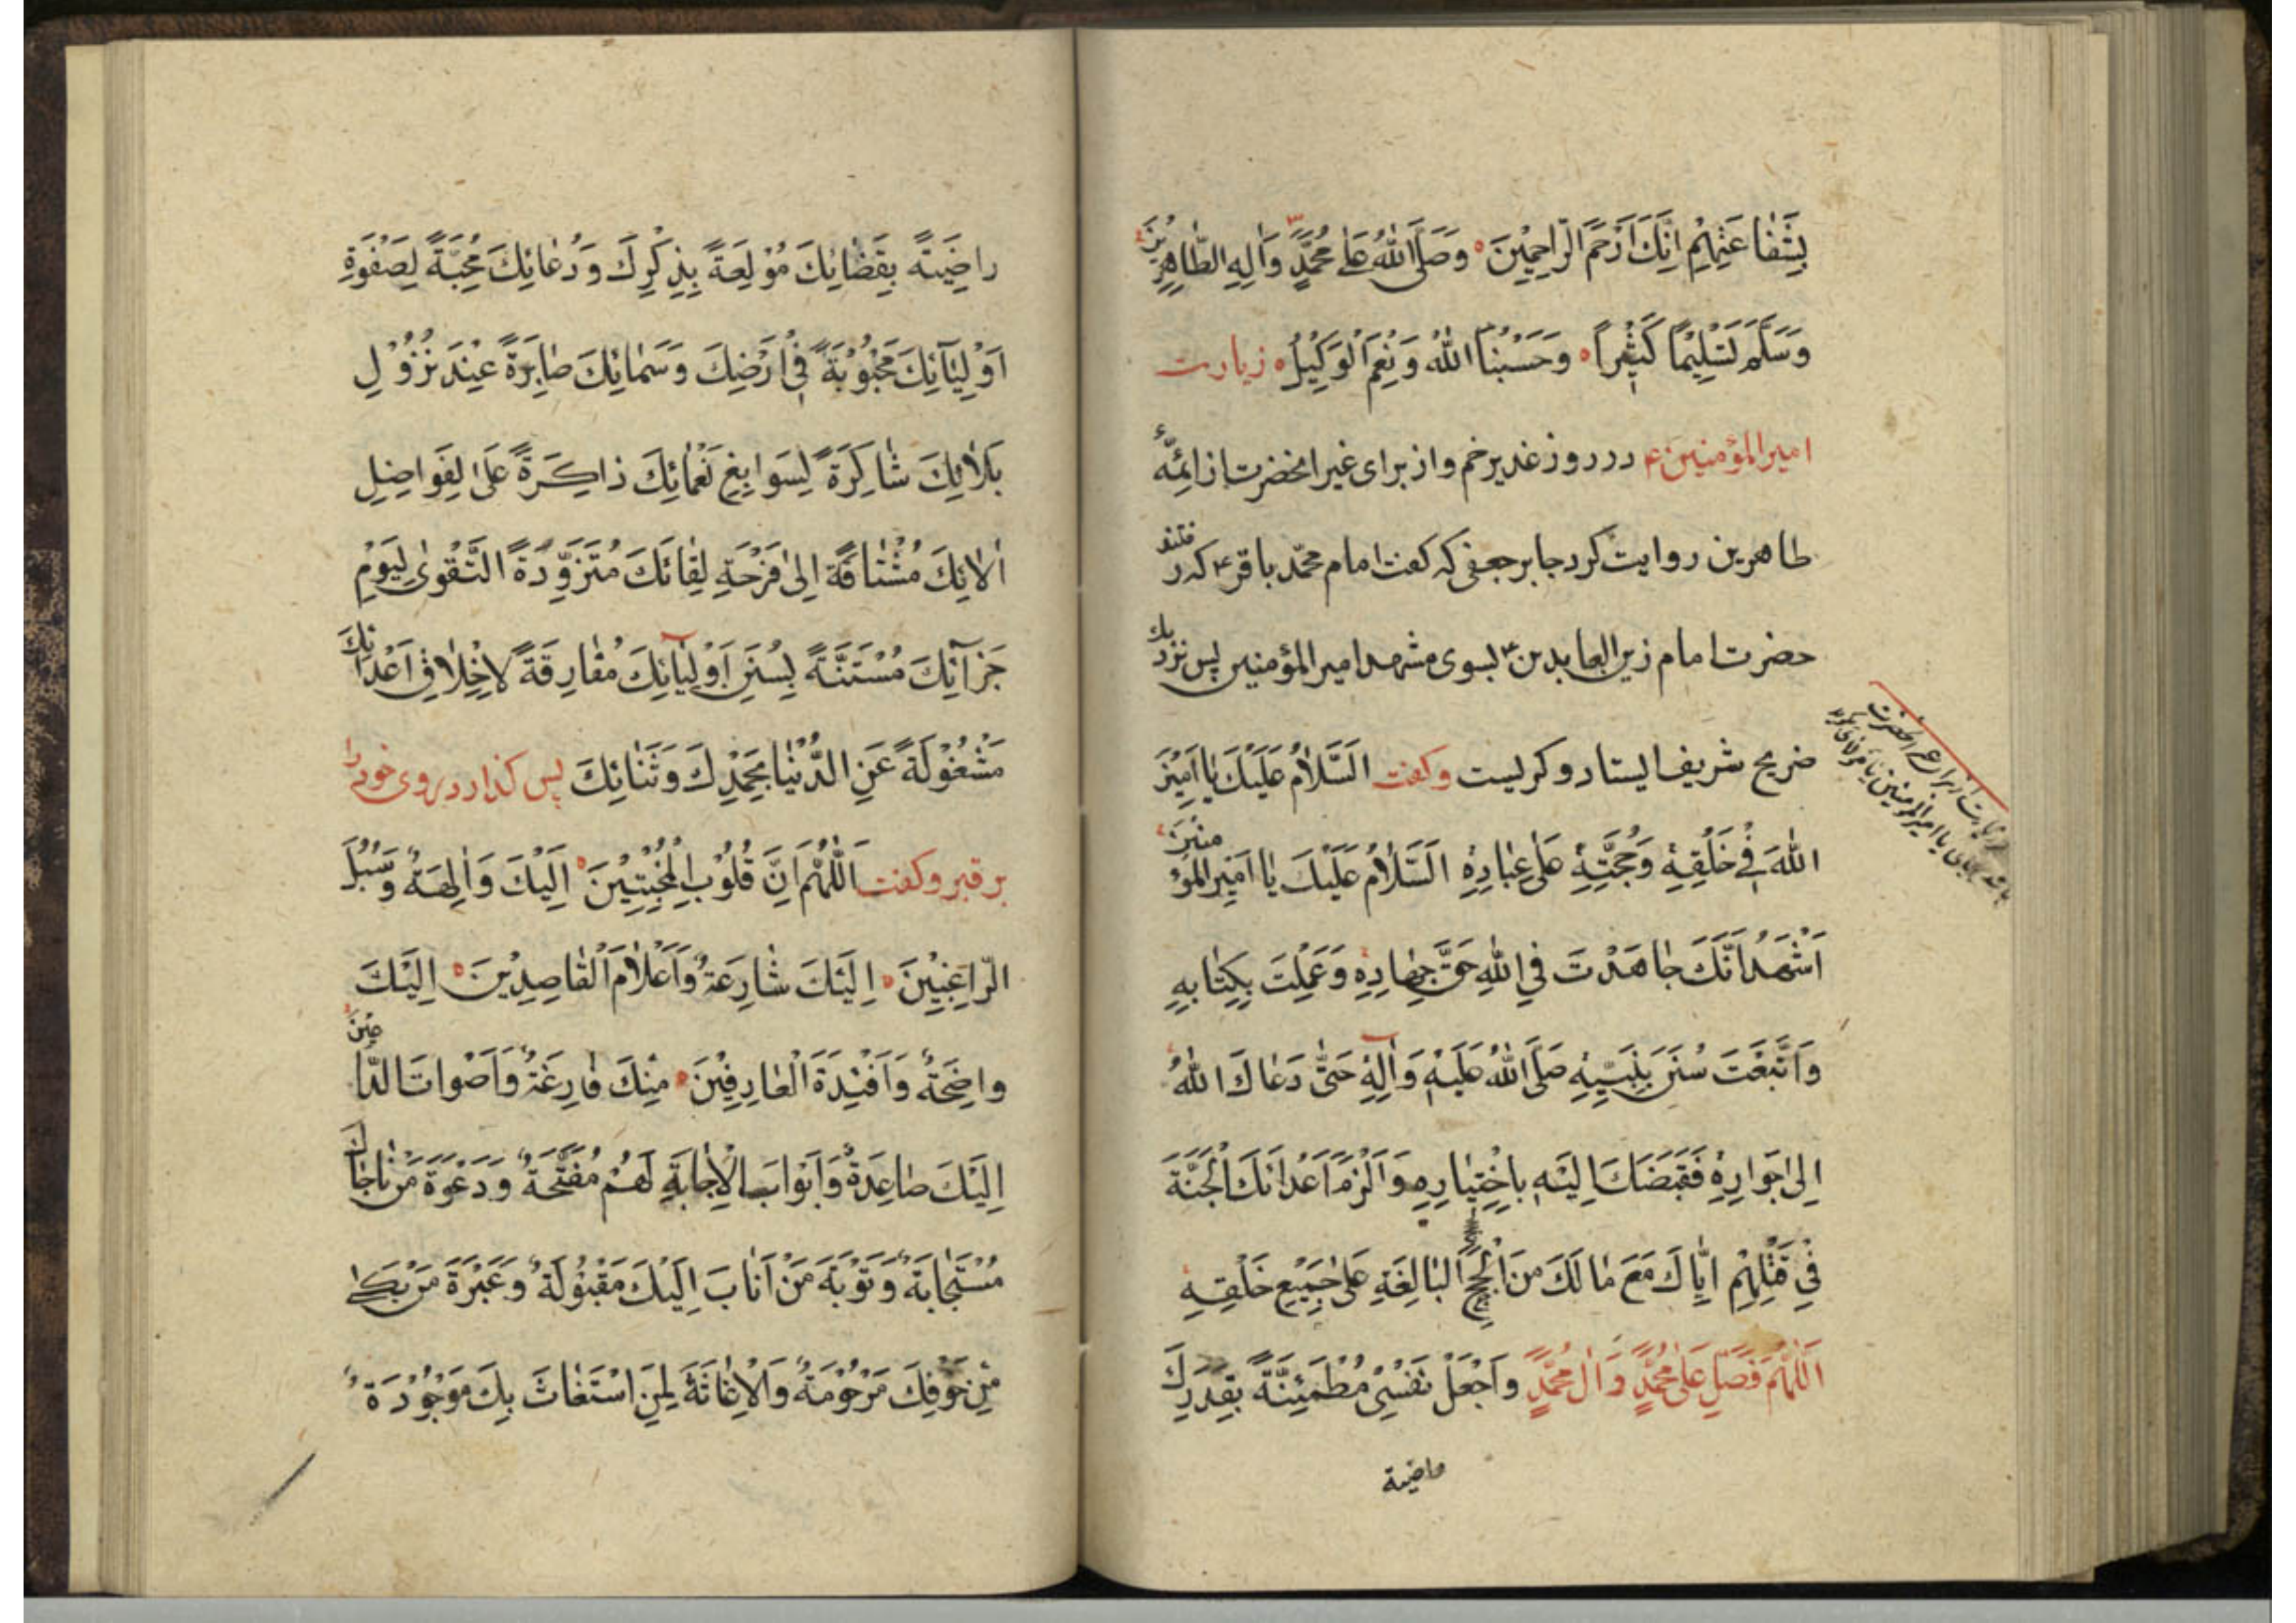 بِشَفٰاعَتِهِمْ اِنَّكَ اَرْحَمُ الرّٰاحِمِيْنَ وَصَلَّى اللّٰهُ عَلٰى مُحَمَّدٍ وَاٰلِهِ الطّٰاهِرِيْنَ
وَسَلَّمَ تَسْلِيْمًا كَثِيْراً وَحَسْبُنَا اللّٰهُ وَنِعْمَ الْوَكِيْلُ زيارت
امير المؤمنين ع در روز غدير خم واز براى غير انحضرت از ائمّهٔ
طاهرين روايت كرد جابر جعفى كه كفت امام محمّد باقر ع كه رفتند
حضرت امام زين العابدين ع بسوى مشهد امير المؤمنين پس نزديك
ضريح شريف ايستاد و كريست وكفت اَلسَّلاٰمُ عَلَيْكَ يٰا اَمِيْنَ
اللّٰهِ فِيْ خَلْقِهِ وَحُجَّتِهِ عَلٰى عِبٰادِهِ اَلسَّلاٰمُ عَلَيْكَ يٰا اَمِيْرَ الْمُؤْمنين
اَشْهَدُ اَنَّكَ جٰاهَدْتَ فِي اللّٰهِ حَقَّ جِهٰادِهِ وَعَمِلْتَ بِكِتٰابِهِ
وَاتَّبَعْتَ سُنَنَ نَبِيِّهِ صَلَّى اللّٰهُ عَلَيْهِ وَاٰلِهِ حَتّٰى دَعٰاكَ اللّٰهُ
اِلىٰ جَوٰارِهِ فَقَبَضَكَ اِلَيْهِ بِاخْتِيٰارِهِ وَاَلْزَمَ اَعْدٰائَكَ الْحُجَّةَ
فِيْ قَتْلِهِمْ اِيّٰاكَ مَعَ مٰا لَكَ مِنَ الْحُجَجِ الْبٰالِغَةِ عَلٰى جَمِيْعِ خَلْقِهِ
اَللّٰهُمَّ فَصَلِّ عَلٰى مُحَمَّدٍ وَاٰلِ مُحَمَّدٍ وَاجْعَلْ نَفْسِيْ مُطْمَئِنَّةً بِقَدَرِكَ
راضية
رٰاضِيَةً بِقَضٰائِكَ مُوْلِعَةً بِذِكْرِكَ وَدُعٰائِكَ مُحِبَّةً لِصَفْوَةِ
اَوْلِيٰآئِكَ مَحْبُوْبَةً فِيْ اَرْضِكَ وَسَمٰائِكَ صٰابِرَةً عِنْدَ نُزُوْلِ
بَلاٰئِكَ شٰاكِرَةً لِسَوابِغِ نَعْمٰائِكَ ذاكِرَةً عَلىٰ لِفَواضِلِ
اٰلاٰئِكَ مُشْتٰاقَةً اِلىٰ فَرْحَةِ لِقٰائِكَ مُتَزَوِّدَةً التَّقْوىٰ لِيَوْمِ
جَزآئِكَ مُسْتَنَّةً بِسُنَنِ اَوْلِيٰآئِكَ مُفٰارِقَةً لاَخْلاٰقِ اَعْدٰائِكَ
مَشْغُوْلَةً عَنِ الدُّنْيٰا بِحَمْدِكَ وَثَنٰائِكَ پس كذارد روى خود را
بر قبر و كفت اَللّٰهُمَّ اِنَّ قُلُوْبَ الْمُخْبِتِيْنَ اِلَيْكَ وٰالِهَةٌ وَسُبُلَ
الرّٰاغِبِيْنَ اِلَيْكَ شٰارِعَةٌ وَاَعْلاٰمَ الْقٰاصِدِيْنَ اِلَيْكَ
واضِحَةٌ وَاَفْئِدَةَ الْعٰارِفِيْنَ مِنْكَ فٰازِعَةٌ وَاَصْواتَ الدّٰاعِيْنَ
اِلَيْكَ صٰاعِدَةٌ وَاَبْوٰابَ الْاِجٰابَةِ لَهُمْ مُفَتَّحَةٌ وَدَعْوَةَ مَنْ نٰاجٰاكَ
مُسْتَجٰابَةٌ وَتَوْبَةَ مَنْ اَنٰابَ اِلَيْكَ مَقْبُوْلَةٌ وَعَبْرَةَ مَنْ بَكىٰ
مِنْ خَوْفِكَ مَرْحُوْمَةٌ وَالْاِغٰاثَةَ لِمَنِ اسْتَغٰاثَ بِكَ مَوْجُوْدَةٌ